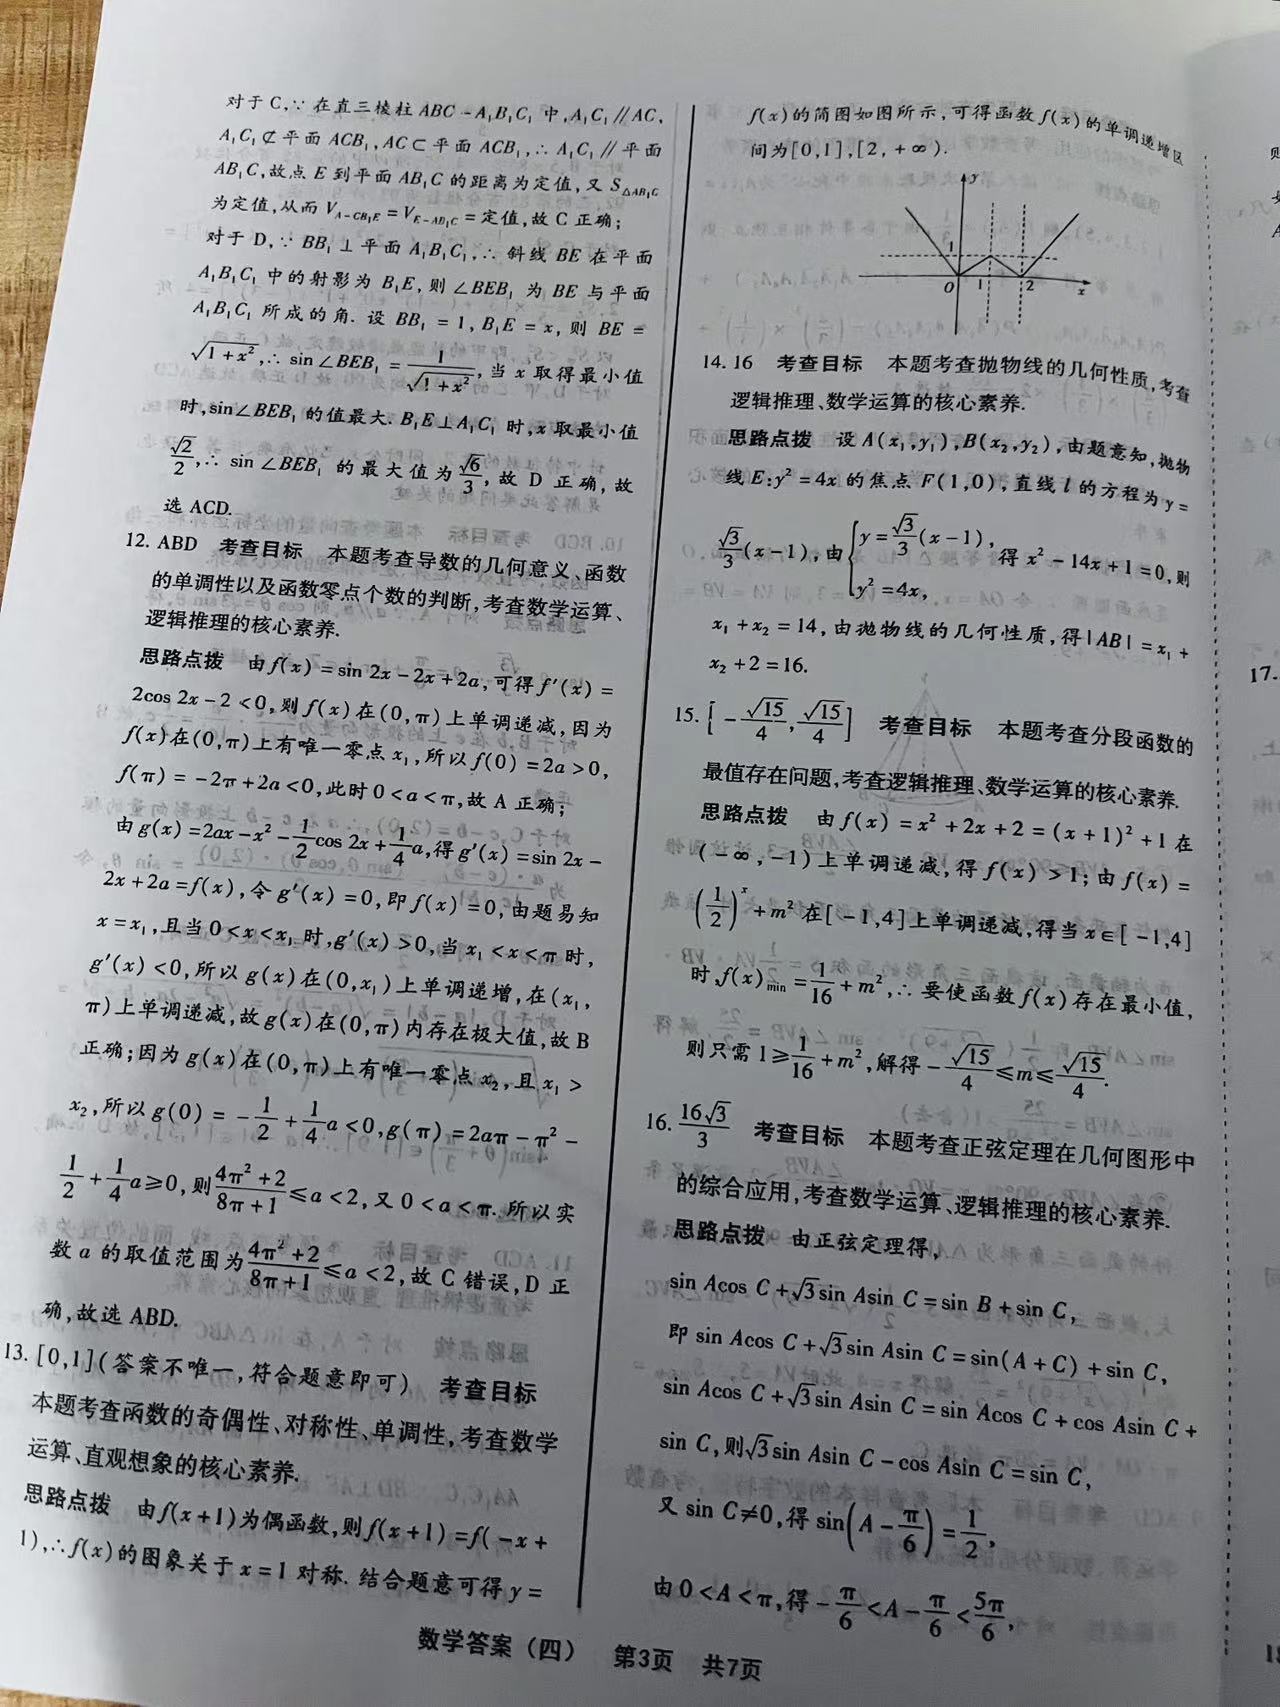 对于 C,∵ 在直三棱柱 ABC-A₁B₁C₁ 中,A₁C₁∥AC,
A₁C₁⊄平面 ACB₁,AC⊂平面 ACB₁,∴ A₁C₁∥平面
AB₁C,故点 E 到平面 AB₁C 的距离为定值,又 S△AB₁C
为定值,从而 V_{A-CB₁E}=V_{E-AB₁C}=定值,故 C 正确;
对于 D,∵ BB₁⊥平面 A₁B₁C₁,∴ 斜线 BE 在平面
A₁B₁C₁ 中的射影为 B₁E,则∠BEB₁ 为 BE 与平面
A₁B₁C₁ 所成的角. 设 BB₁=1,B₁E=x,则 BE=
√(1+x²),∴ sin∠BEB₁=1/√(1+x²),当 x 取得最小值
时,sin∠BEB₁ 的值最大. B₁E⊥A₁C₁ 时,x 取最小值
√2/2,∴ sin∠BEB₁ 的最大值为√6/3,故 D 正确,故
选 ACD.
12. ABD 考查目标 本题考查导数的几何意义、函数
的单调性以及函数零点个数的判断,考查数学运算、
逻辑推理的核心素养.
思路点拨 由f(x)=sin 2x-2x+2a,可得f′(x)=
2cos 2x-2<0,则f(x)在(0,π)上单调递减,因为
f(x)在(0,π)上有唯一零点 x₁,所以f(0)=2a>0,
f(π)=-2π+2a<0,此时0<a<π,故 A 正确;
由g(x)=2ax-x²-1/2cos 2x+1/4a,得g′(x)=sin 2x-
2x+2a=f(x),令g′(x)=0,即f(x)=0,由题易知
x=x₁,且当0<x<x₁时,g′(x)>0,当x₁<x<π时,
g′(x)<0,所以g(x)在(0,x₁)上单调递增,在(x₁,
π)上单调递减,故g(x)在(0,π)内存在极大值,故 B
正确;因为g(x)在(0,π)上有唯一零点 x₂,且x₁>
x₂,所以g(0)=-1/2+1/4a<0,g(π)=2aπ-π²-
1/2+1/4a≥0,则(4π²+2)/(8π+1)≤a<2,又0<a<π.所以实
数 a 的取值范围为(4π²+2)/(8π+1)≤a<2,故 C 错误,D 正
确,故选 ABD.
13. [0,1](答案不唯一,符合题意即可) 考查目标
本题考查函数的奇偶性、对称性、单调性,考查数学
运算、直观想象的核心素养.
思路点拨 由f(x+1)为偶函数,则f(x+1)=f(-x+
1),∴f(x)的图象关于 x=1 对称. 结合题意可得 y=
f(x)的简图如图所示,可得函数f(x)的单调递增区
间为[0,1],[2,+∞).
y
1
O 1 2 x
14. 16 考查目标 本题考查抛物线的几何性质,考查
逻辑推理、数学运算的核心素养.
思路点拨 设 A(x₁,y₁),B(x₂,y₂),由题意知,抛物
线 E:y²=4x 的焦点 F(1,0),直线 l 的方程为 y=
√3/3(x-1),由{y=√3/3(x-1), y²=4x,得 x²-14x+1=0,则
x₁+x₂=14,由抛物线的几何性质,得|AB|=x₁+
x₂+2=16.
15. [-√15/4,√15/4] 考查目标 本题考查分段函数的
最值存在问题,考查逻辑推理、数学运算的核心素养.
思路点拨 由f(x)=x²+2x+2=(x+1)²+1在
(-∞,-1)上单调递减,得f(x)>1;由f(x)=
(1/2)ˣ+m²在[-1,4]上单调递减,得当x∈[-1,4]
时,f(x)min=1/16+m²,∴要使函数f(x)存在最小值,
则只需1≥1/16+m²,解得-√15/4≤m≤√15/4.
16. 16√3/3 考查目标 本题考查正弦定理在几何图形中
的综合应用,考查数学运算、逻辑推理的核心素养.
思路点拨 由正弦定理得,
sin Acos C+√3sin Asin C=sin B+sin C,
即 sin Acos C+√3sin Asin C=sin(A+C)+sin C,
sin Acos C+√3sin Asin C=sin Acos C+cos Asin C+
sin C,则√3sin Asin C-cos Asin C=sin C,
又 sin C≠0,得 sin(A-π/6)=1/2,
由0<A<π,得-π/6<A-π/6<5π/6,
数学答案(四) 第3页 共7页
17.